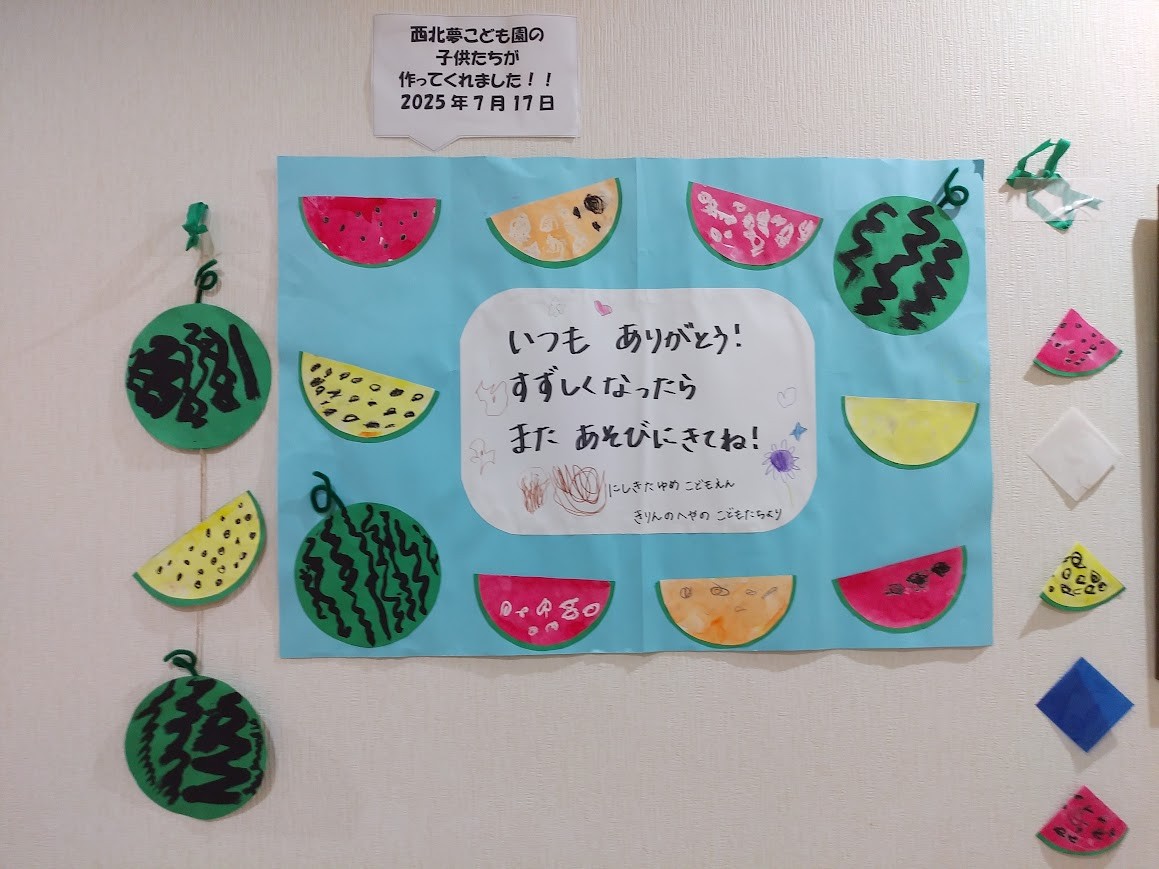 西北夢こども園の
子供たちが
作ってくれました！！
2025年7月17日
いつも ありがとう！
すずしくなったら
また あそびにきてね！
にしきたゆめ こどもえん
きりんのへやの こどもたちより